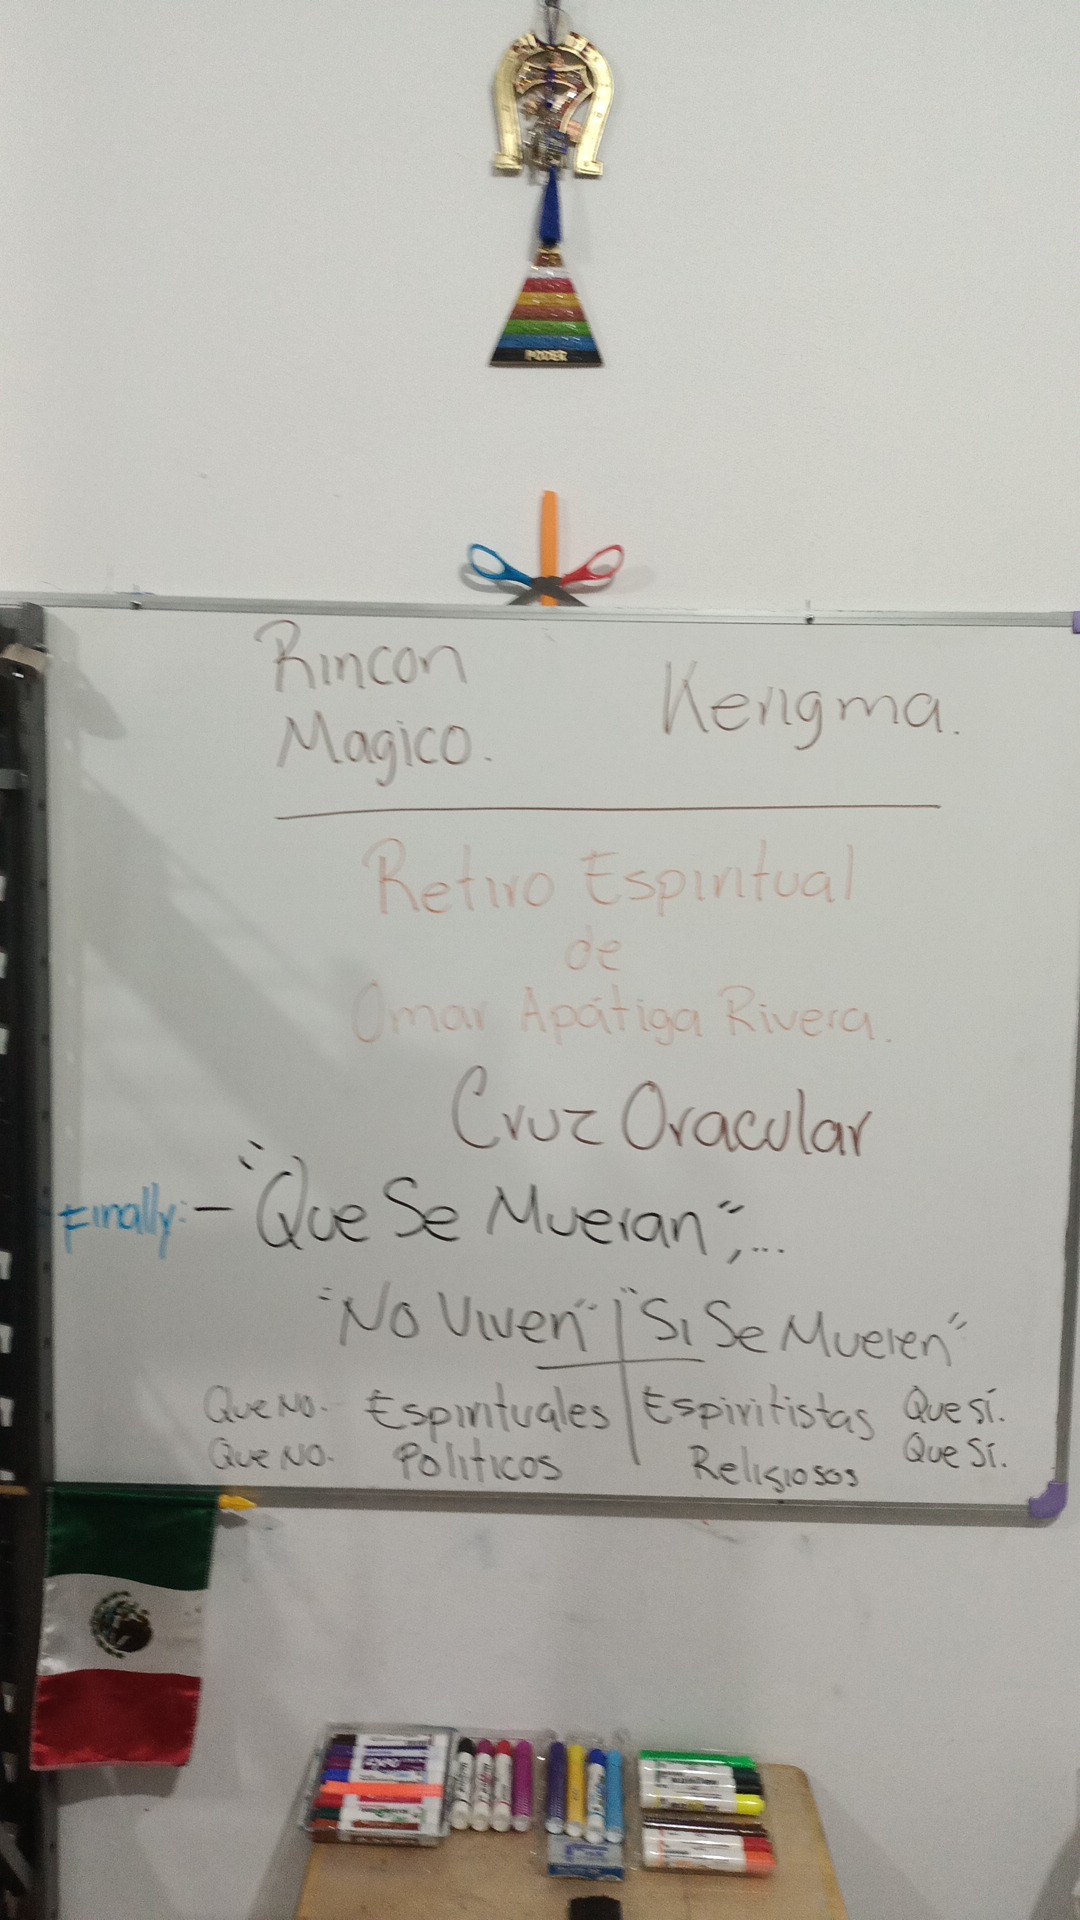 PODER
Rincon
Magico.
Kerigma.
Retiro Espiritual
de
Omar Apátiga Rivera.
Cruz Oracular
Finally:- "Que Se Mueran",...
"No Viven" | "Si Se Mueren"
Que No. Espirituales | Espiritistas Que sí.
Que No. Políticos Religiosos Que Sí.